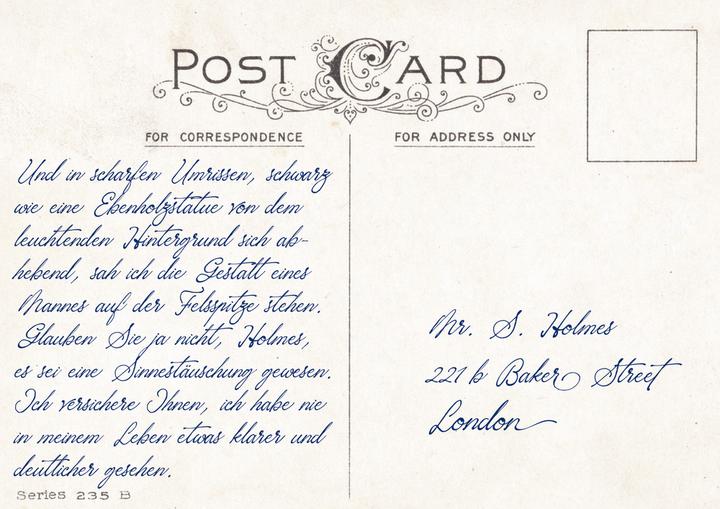 POST CARD
FOR CORRESPONDENCE
FOR ADDRESS ONLY
Und in scharfen Umrissen, schwarz
wie eine Ebenholzstatue von dem
leuchtenden Hintergrund sich ab-
hebend, sah ich die Gestalt eines
Mannes auf der Felsspitze stehen.
Glauben Sie ja nicht, Holmes,
es sei eine Sinnestäuschung gewesen.
Ich versichere Ihnen, ich habe nie
in meinem Leben etwas klarer und
deutlicher gesehen.
Series 235 B
Mr. S. Holmes
221 b Baker Street
London